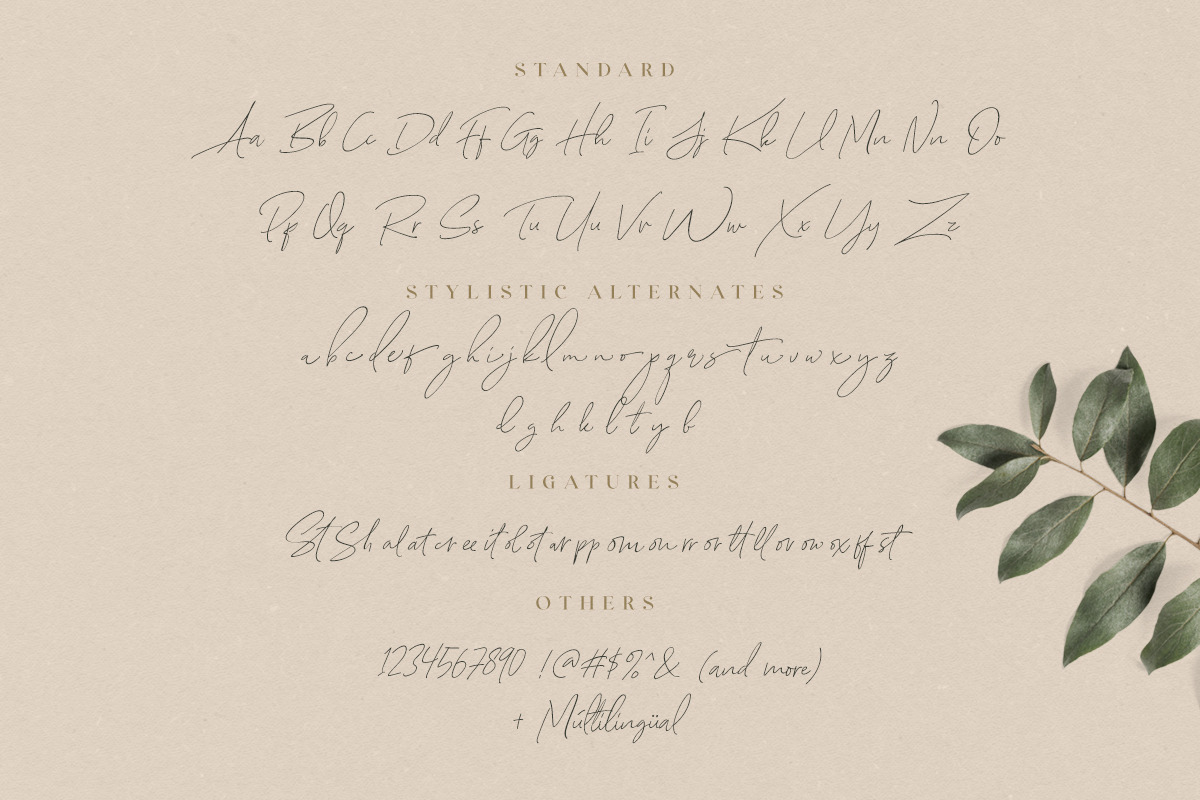 STANDARD
Aa Bb Cc Dd Ff Gg Hh Ii Jj Kk Ll Mm Nn Oo
Pp Qq Rr Ss Tu Uu Vv Ww Xx Yy Zz
STYLISTIC ALTERNATES
a b c d e f g h i j k l m n o p q r s t u v w x y z
d g h k l t y b
LIGATURES
St Sh al at cr ee it ol ot ar pp om on rr or tt ll ov ow ox ff st
OTHERS
1234567890 !@#$%^& (and more)
+ Múltilingüal